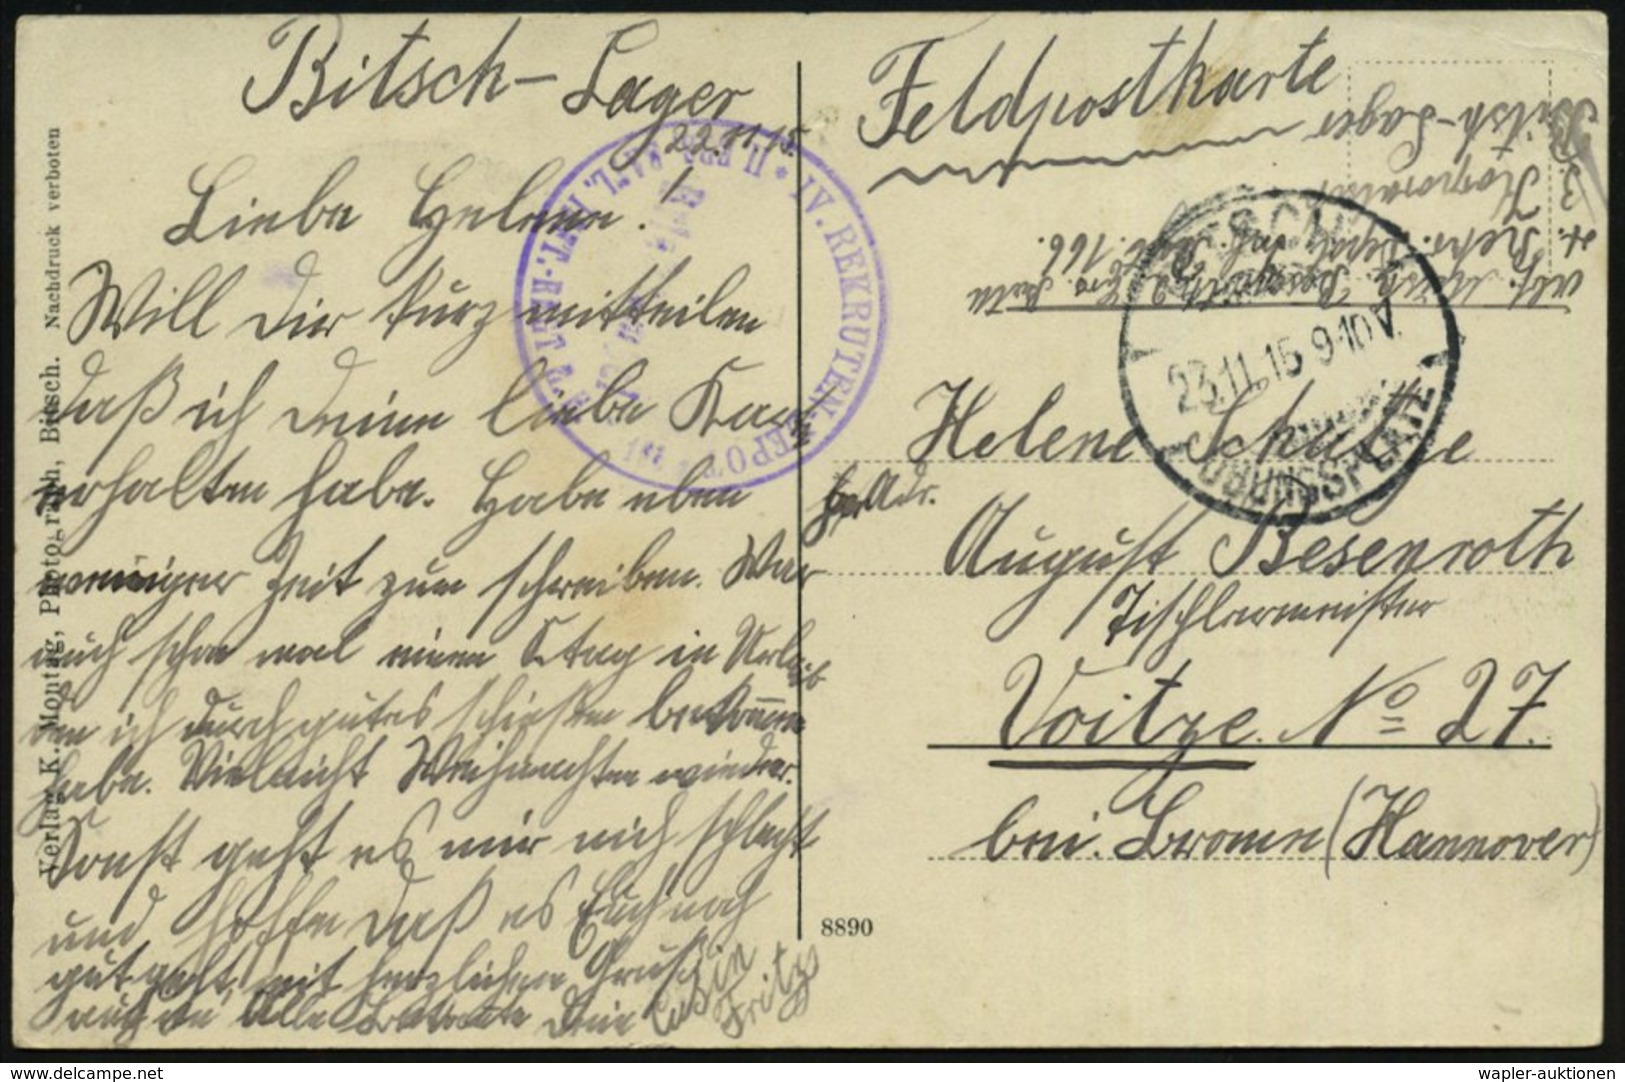 Bitsch-Lager
22.11.15.
Liebe Helene!
Will Dir kurz mitteilen
daß ich Deine liebe Karte
erhalten habe. Habe eben
weniger Zeit zum schreiben. War
auch schon mal einen Tag in Urlaub
den ich durch gutes schießen bekommen
habe. Vielleicht Weihnachten wieder.
Sonst geht es mir nich schlecht
und hoffe daß es Euch noch
gut geht. mit herzlichen Gruß
auch an Alle Bekannte Dein Cusin
Fritz
Verlag K. Montag, Photograph, Bitsch. Nachdruck verboten
IV. REKRUTEN-DEPOT
Feldpostkarte
Abs. Musk. Besenroth
Rekr. Depot Inf. Regt. 166.
3. Korporalsch.
Bitsch-Lager
BITSCH
23.11.15 9-10V.
ÜBUNGSPLATZ
Helene Schulze
Adr.
August Besenroth
Tischlermeister
Voitze No 27.
bei Brome (Hannover)
8890
wapler-auktionen.com